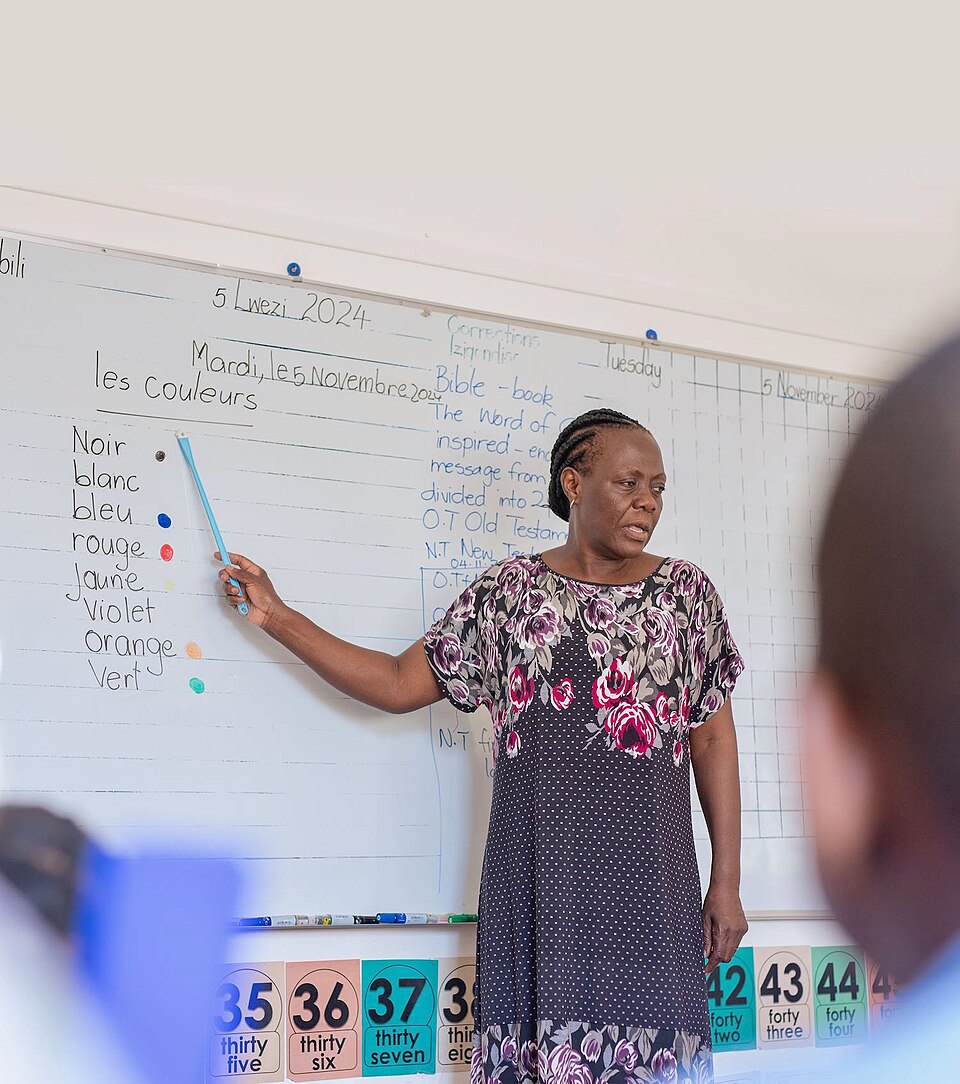 bili
5 Lwezi 2024
Mardi, le 5 Novembre 2024
les couleurs
Noir
blanc
bleu
rouge
Jaune
Violet
Orange
Vert
Corrections
Bible - book
The Word of
inspired -
message from
divided into 2
O.T Old Testam
N.T New
O.T
N.T
Tuesday
5 November 2024
35
thirty
five
36
thirty
six
37
thirty
seven
38
42
forty
two
43
forty
three
44
forty
four